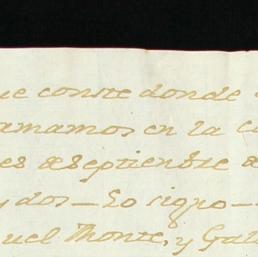 ue conste donde
amamos en la c
es de septiembre
y dos - lo signo -
uel Monte, y Gal